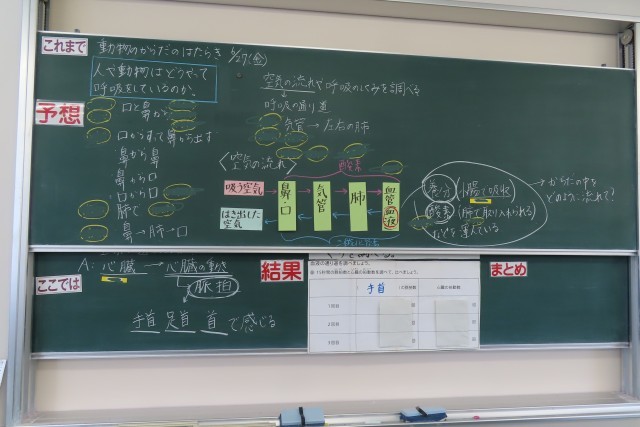 これまで
動物のからだのはたらき 6/27(金)
人や動物はどうやって
呼吸をしているのか。
予想
口と鼻から
口からすって鼻から出す
鼻から鼻
鼻から口
口から口
肺で
鼻→肺→口
空気の流れや呼吸のしくみを調べる
呼吸の通り道
気管→左右の肺
〈空気の流れ〉
酸素
吸う空気
はき出した
空気
鼻・口
気管
肺
血管
血液
二酸化炭素
養分(小腸で吸収)
酸素(肺で取り入れられる)
などを運んでいる
→からだの中を
どのように流れて?
ここでは
A:心臓→心臓の動き
脈拍
手首 足首 首で感じる
結果
手首
1回目
2回目
3回目
まとめ